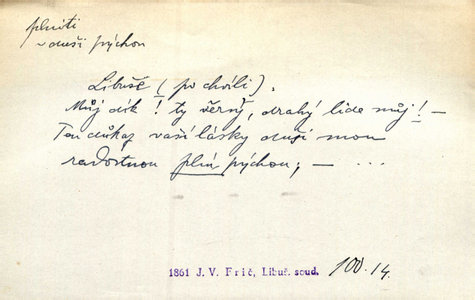 plniti
duši pýchou
Libuše (po chvíli).
Můj dík! ty věrný, drahý lide můj! —
Ten důkaz vaší lásky duši mou
radostnou plní pýchou; — ...
1861 J. V. Frič, Libuš. soud. 100.14.